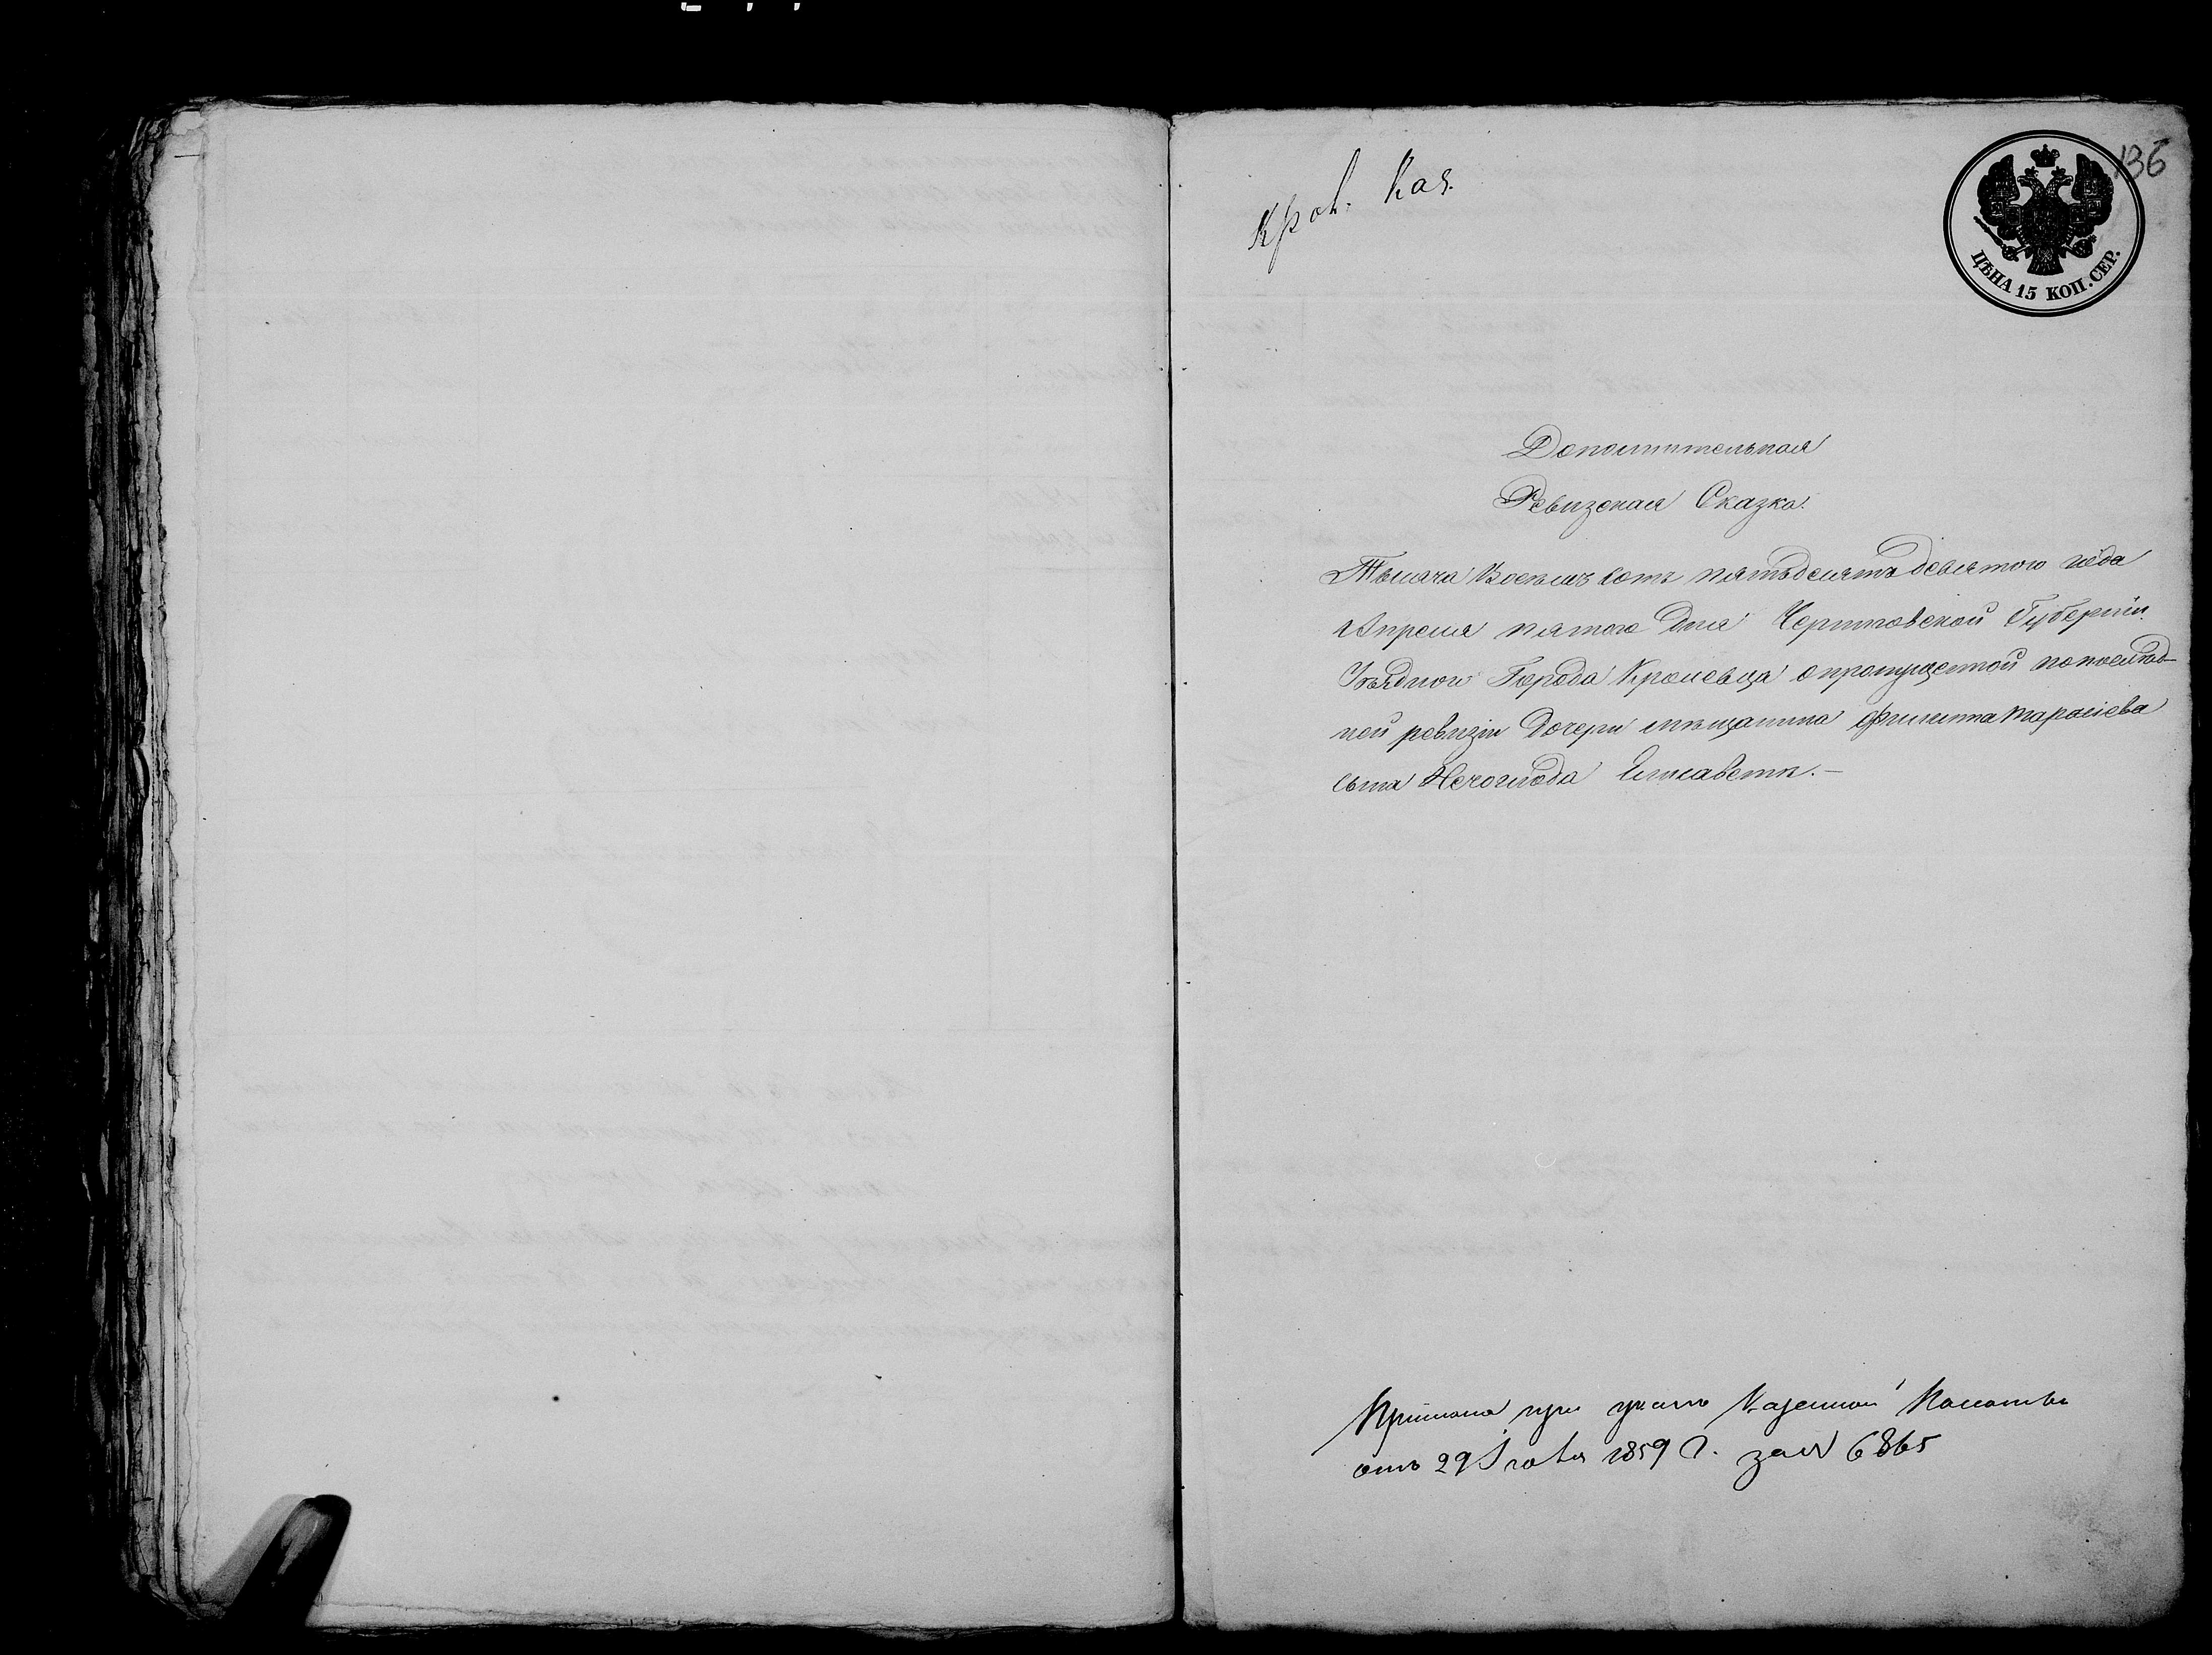 136
Крол. Каз.
ЦѢНА 15 КОП. СЕР.
Дополнительная
Ревизская Сказка.
Тысяча Восемь сотъ пятьдесятъ девятого года
Апреля пятого дня Черниговской Губерніи
Уѣздного Города Кролевца о пропущенной по послѣд-
ней ревизіи дочери мѣщанина Филиппа Тарасіева
сына Нечоглода Елисаветы.—
Принята при указѣ Казенной Палаты
отъ 29 1859 г. за № 6865